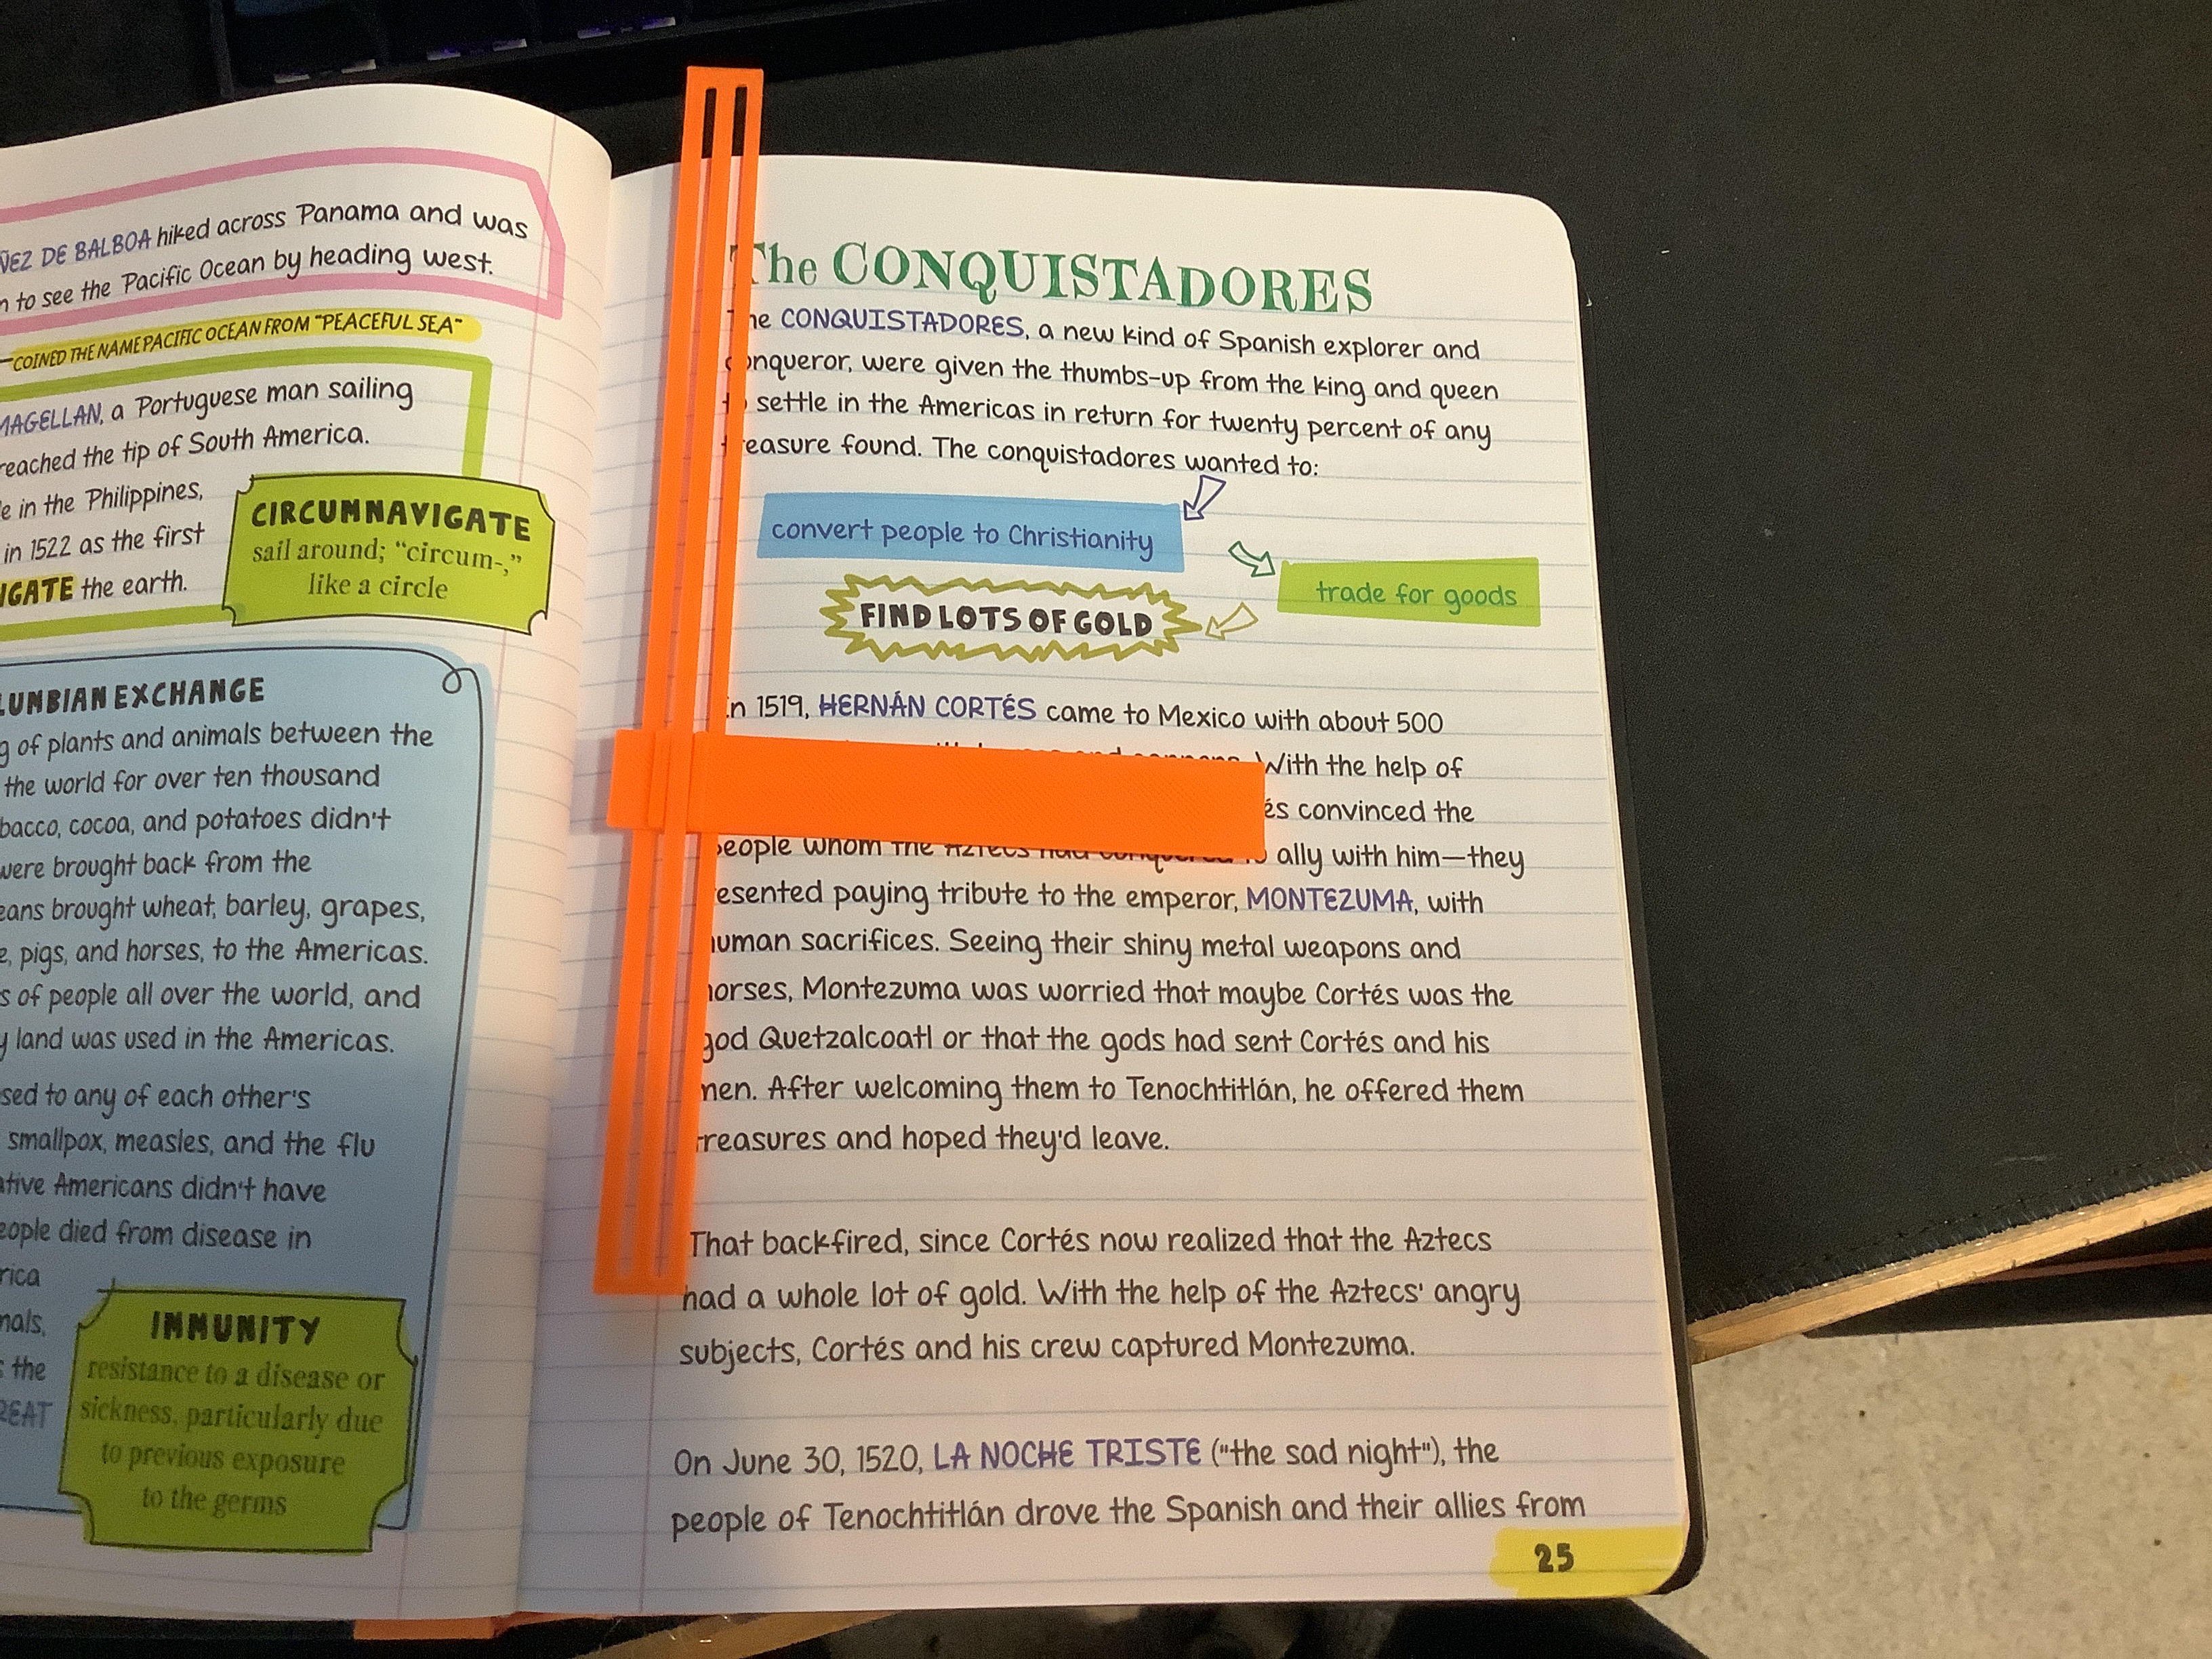 ÑEZ DE BALBOA hiked across Panama and was
to see the Pacific Ocean by heading west.
COINED THE NAME PACIFIC OCEAN FROM "PEACEFUL SEA"
MAGELLAN, a Portuguese man sailing
reached the tip of South America.
in the Philippines,
in 1522 as the first
IGATE the earth.
CIRCUMNAVIGATE
sail around; "circum-,"
like a circle
LUMBIAN EXCHANGE
of plants and animals between the
the world for over ten thousand
bacco, cocoa, and potatoes didn't
were brought back from the
eans brought wheat, barley, grapes,
pigs, and horses, to the Americas.
of people all over the world, and
land was used in the Americas.
sed to any of each other's
smallpox, measles, and the flu
ative Americans didn't have
eople died from disease in
rica
mals,
the
REAT
IMMUNITY
resistance to a disease or
sickness, particularly due
to previous exposure
to the germs
The CONQUISTADORES
The CONQUISTADORES, a new kind of Spanish explorer and
conqueror, were given the thumbs-up from the king and queen
to settle in the Americas in return for twenty percent of any
treasure found. The conquistadores wanted to:
convert people to Christianity
trade for goods
FIND LOTS OF GOLD
In 1519, HERNÁN CORTÉS came to Mexico with about 500
With the help of
és convinced the
people whom the Aztecs had conquered to ally with him—they
resented paying tribute to the emperor, MONTEZUMA, with
human sacrifices. Seeing their shiny metal weapons and
horses, Montezuma was worried that maybe Cortés was the
god Quetzalcoatl or that the gods had sent Cortés and his
men. After welcoming them to Tenochtitlán, he offered them
treasures and hoped they'd leave.
That backfired, since Cortés now realized that the Aztecs
had a whole lot of gold. With the help of the Aztecs' angry
subjects, Cortés and his crew captured Montezuma.
On June 30, 1520, LA NOCHE TRISTE ("the sad night"), the
people of Tenochtitlán drove the Spanish and their allies from
25